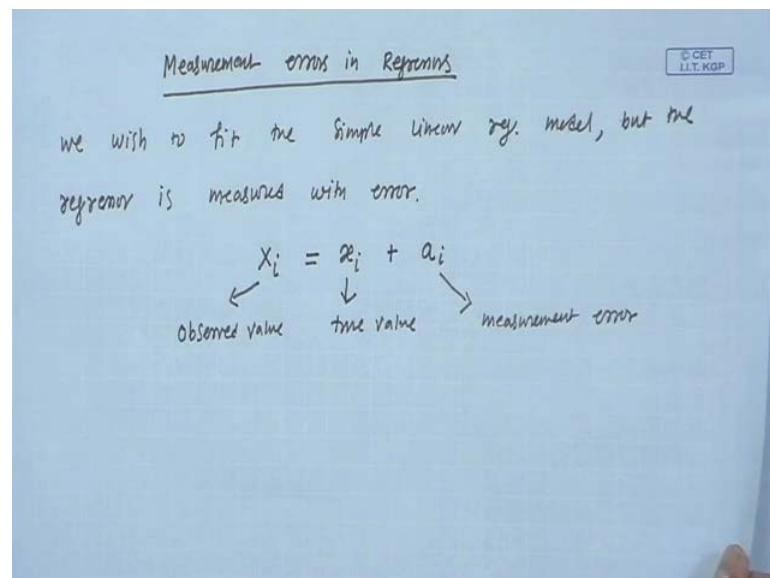 Measurement errors in Regressors
© CET
I.I.T. KGP
we wish to fit the simple linear reg. model, but the
regressor is measured with error.
Xi = xi + ai
Observed value true value measurement error